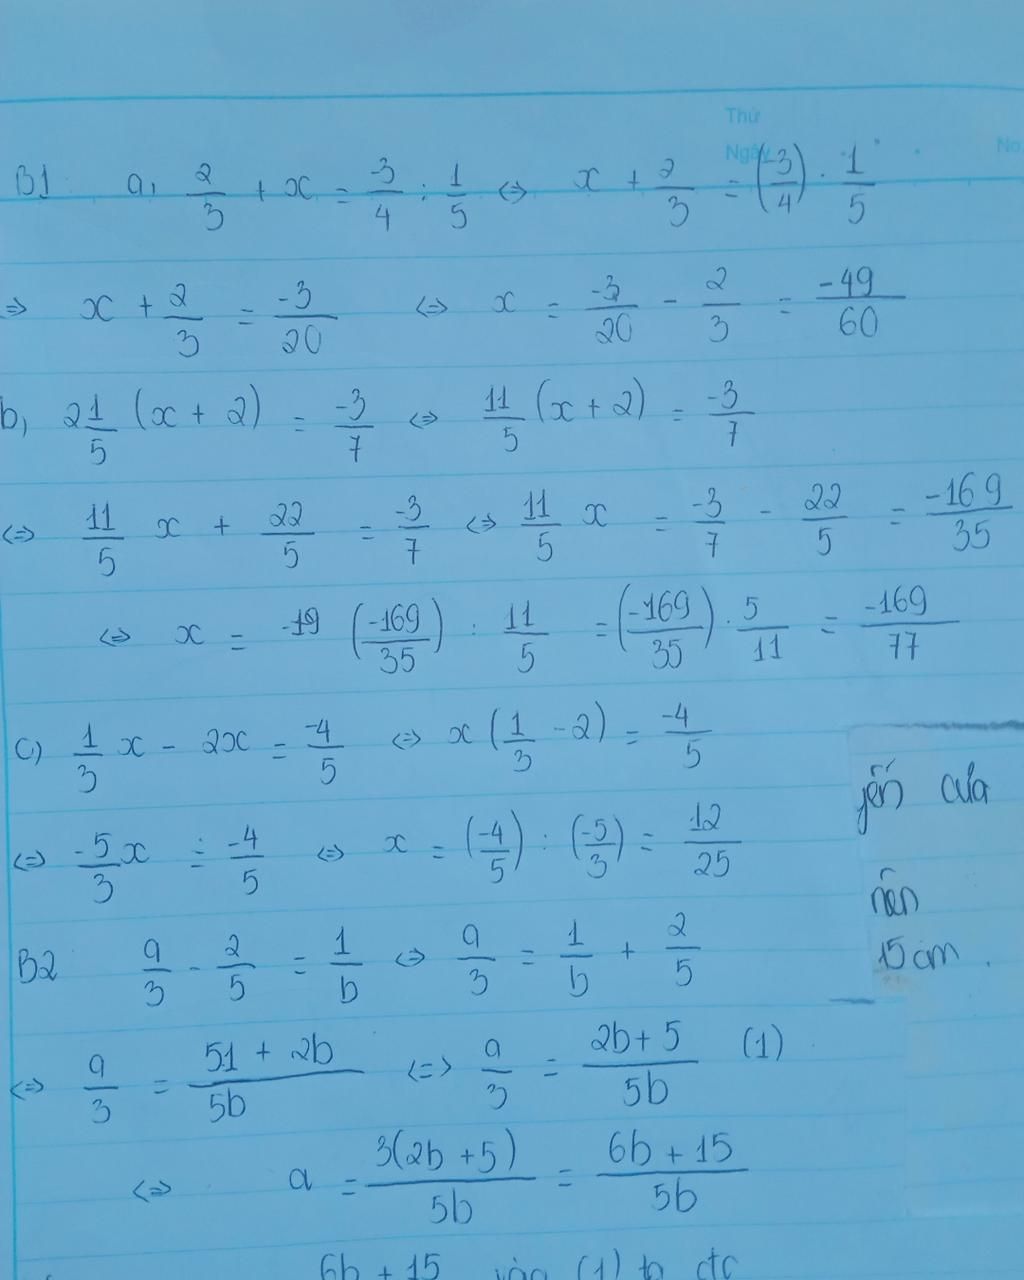 Thứ
Ngày No.
B1 a, 2/3 + x = -3/4 : 1/5 ⇔ x + 2/3 = (-3/4) . 1/5
⇒ x + 2/3 = -3/20 ⇔ x = -3/20 - 2/3 = -49/60
b, 2 1/5 (x + 2) = -3/7 ⇔ 11/5 (x + 2) = -3/7
⇔ 11/5 x + 22/5 = -3/7 ⇔ 11/5 x = -3/7 - 22/5 = -169/35
⇔ x = (-169/35) : 11/5 = (-169/35) . 5/11 = -169/77
c) 1/3 x - 2x = -4/5 ⇔ x (1/3 - 2) = -4/5
⇔ -5/3 x = -4/5 ⇔ x = (-4/5) : (-5/3) = 12/25
B2 a/3 - 2/5 = 1/b ⇔ a/3 = 1/b + 2/5
⇔ a/3 = (5.1 + 2b)/5b ⇔ a/3 = (2b + 5)/5b (1)
⇔ a = 3(2b + 5)/5b = (6b + 15)/5b
6b + 15 vào (1) ta đc
của
nên
15 cm.